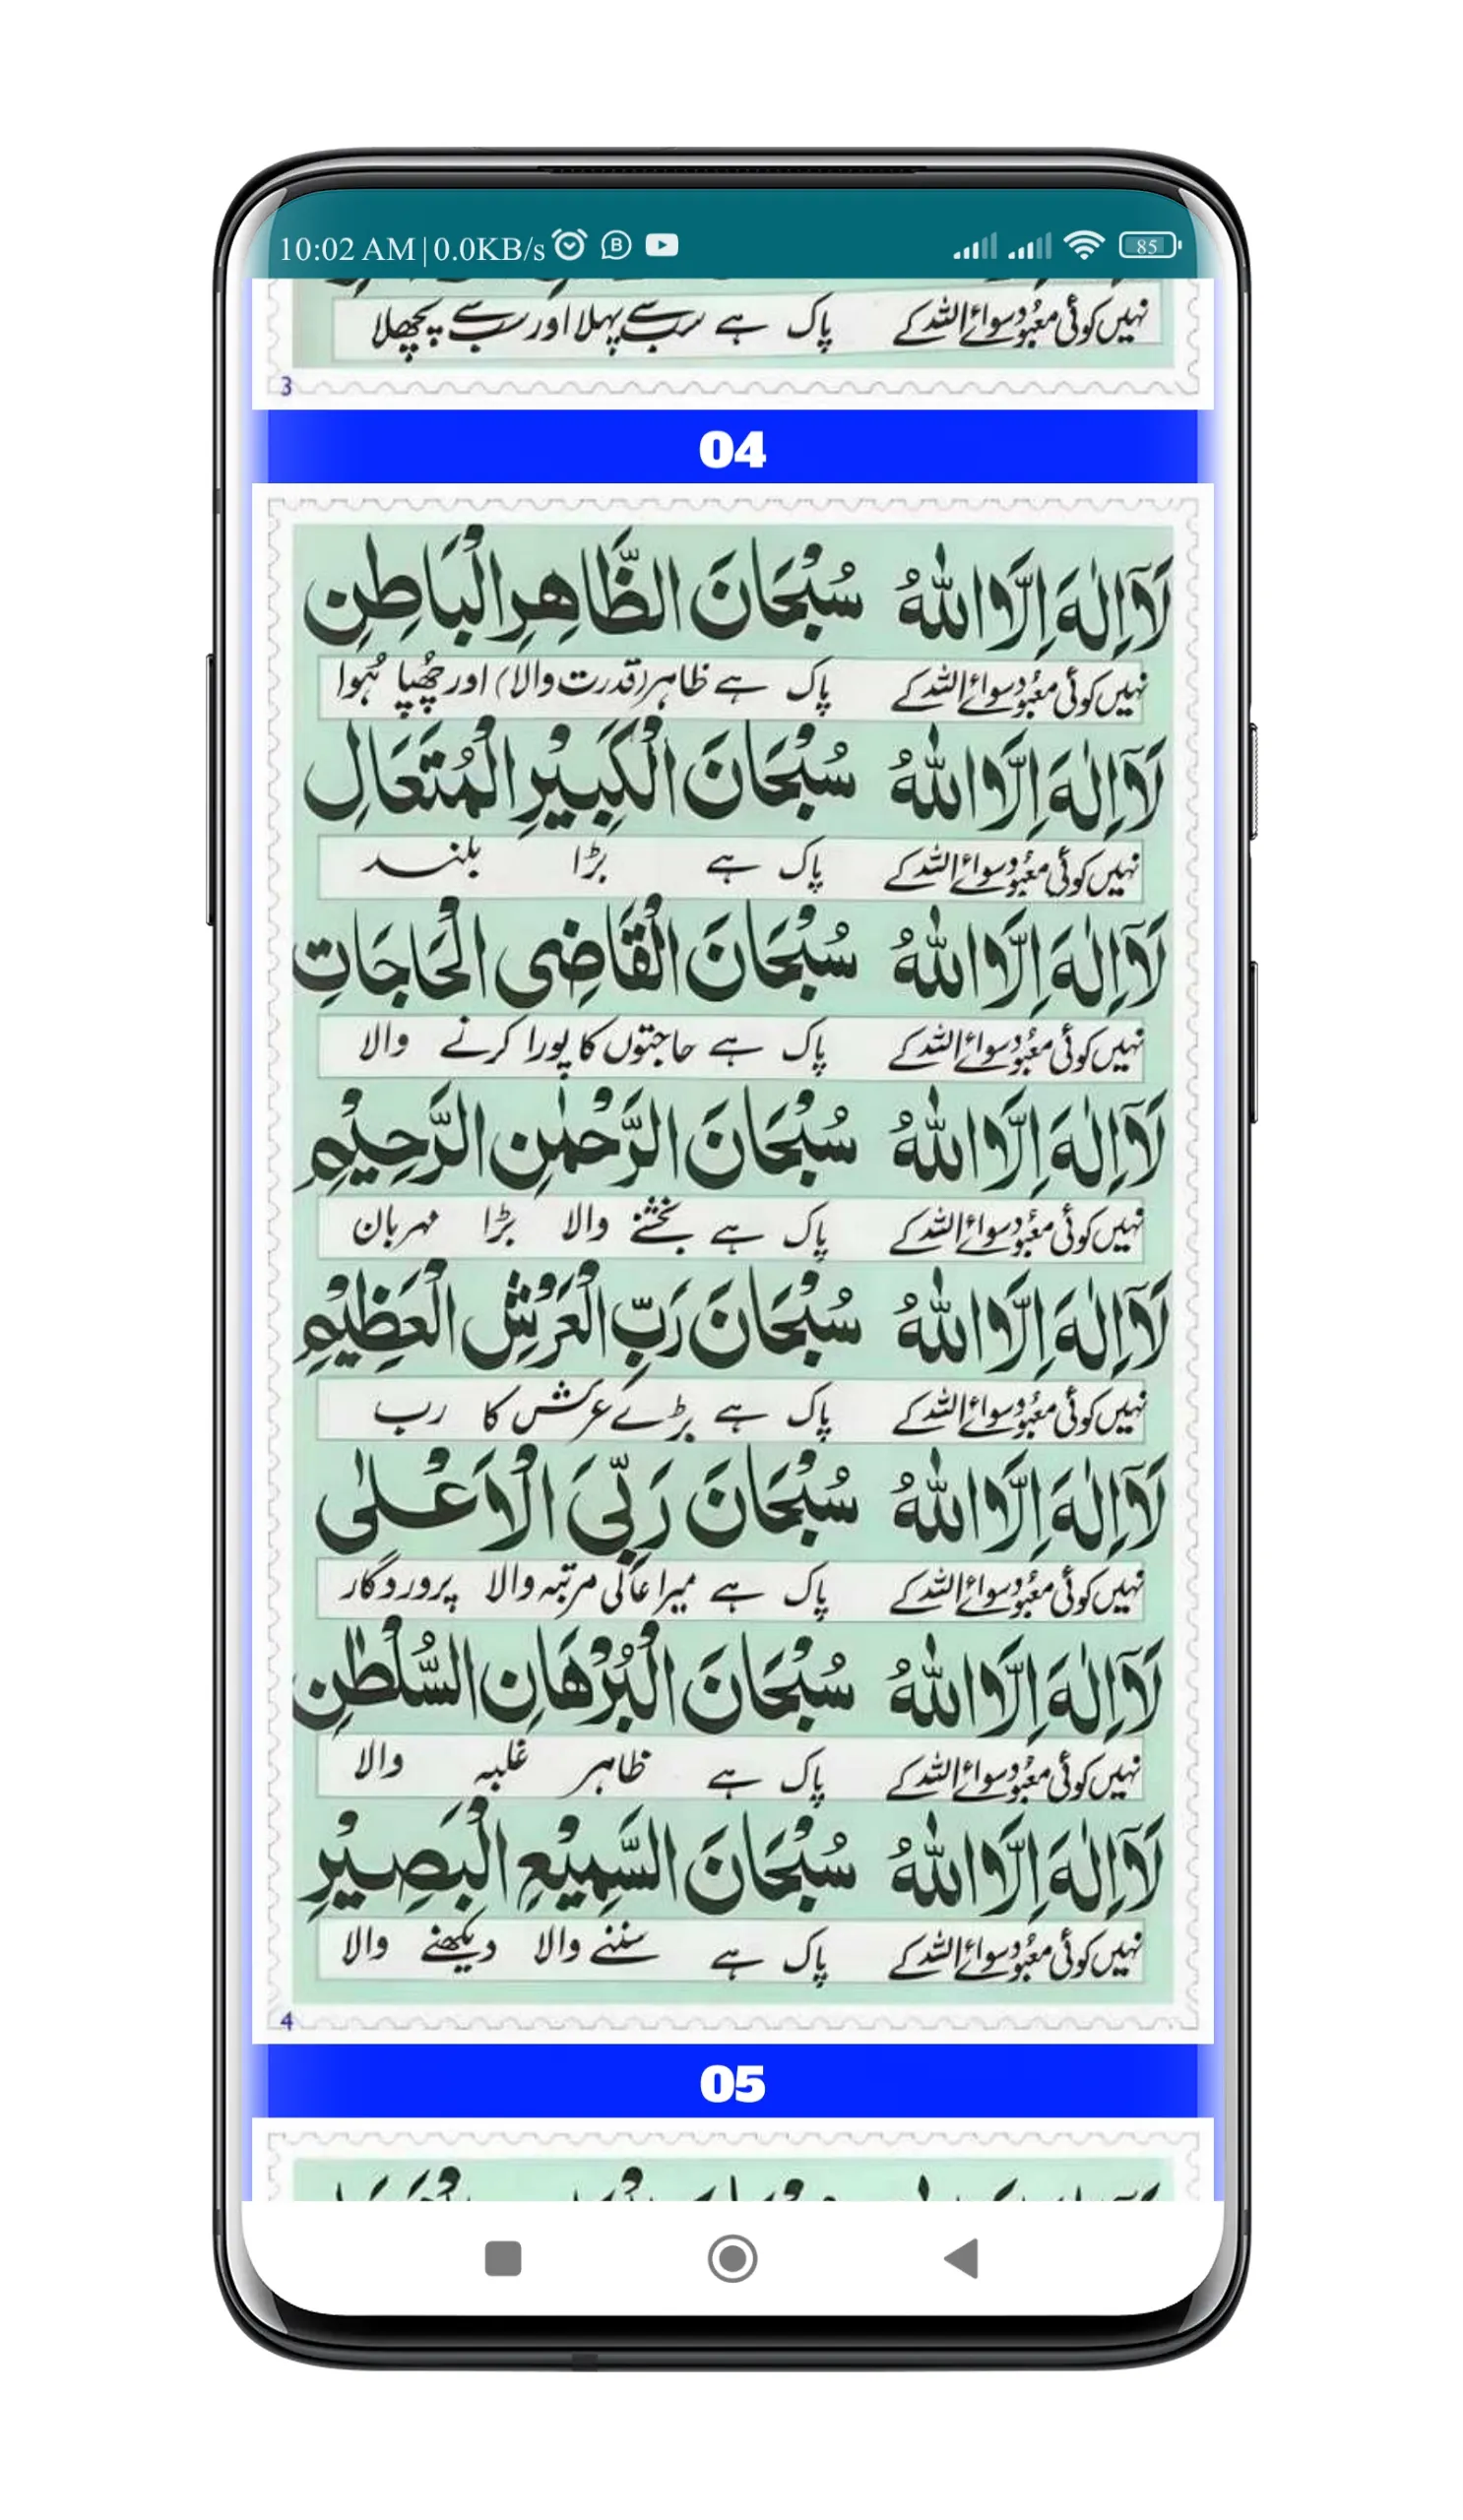 10:02 AM|0.0KB/s B 85
نہیں کوئی معبود سوائے اللہ کے پاک ہے سب سے پہلا اور سب سے پچھلا
3
04
لَآ اِلٰهَ اِلَّا اللّٰهُ سُبْحَانَ الظَّاهِرِ الْبَاطِنِ
نہیں کوئی معبود سوائے اللہ کے پاک ہے ظاہر (قدرت والا) اور چُھپا ہُوا
لَآ اِلٰهَ اِلَّا اللّٰهُ سُبْحَانَ الْكَبِيْرِ الْمُتَعَالِ
نہیں کوئی معبود سوائے اللہ کے پاک ہے بڑا بلند
لَآ اِلٰهَ اِلَّا اللّٰهُ سُبْحَانَ الْقَاضِى الْحَاجَاتِ
نہیں کوئی معبود سوائے اللہ کے پاک ہے حاجتوں کا پورا کرنے والا
لَآ اِلٰهَ اِلَّا اللّٰهُ سُبْحَانَ الرَّحْمٰنِ الرَّحِيْمِ
نہیں کوئی معبود سوائے اللہ کے پاک ہے بخشنے والا بڑا مہربان
لَآ اِلٰهَ اِلَّا اللّٰهُ سُبْحَانَ رَبِّ الْعَرْشِ الْعَظِيْمِ
نہیں کوئی معبود سوائے اللہ کے پاک ہے بڑے عرش کا رب
لَآ اِلٰهَ اِلَّا اللّٰهُ سُبْحَانَ رَبِّىَ الْاَعْلٰى
نہیں کوئی معبود سوائے اللہ کے پاک ہے میرا عالی مرتبہ والا پروردگار
لَآ اِلٰهَ اِلَّا اللّٰهُ سُبْحَانَ الْبُرْهَانِ السُّلْطٰنِ
نہیں کوئی معبود سوائے اللہ کے پاک ہے ظاہر غلبہ والا
لَآ اِلٰهَ اِلَّا اللّٰهُ سُبْحَانَ السَّمِيْعِ الْبَصِيْرِ
نہیں کوئی معبود سوائے اللہ کے پاک ہے سننے والا دیکھنے والا
4
05